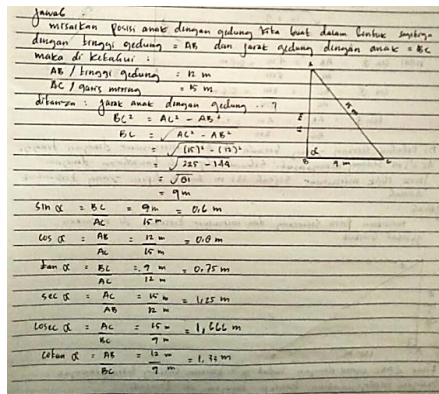 Jawab :
misalkan posisi anak dengan gedung kita buat dalam bentuk segitiga
dengan tinggi gedung = AB dan jarak gedung dengan anak = BC
maka di ketahui :
AB / tinggi gedung = 12 m
AC / garis miring = 15 m
ditanya : jarak anak dengan gedung .. ?
BC² = AC² - AB²
BC = √AC² - AB²
= √(15)² - (12)²
= √225 - 144
= √81
= 9 m
A
15 m
12 m
α
B
9 m
C
sin α = BC = 9 m = 0,6 m
AC 15 m
cos α = AB = 12 m = 0,8 m
AC 15 m
tan α = BC = 9 m = 0,75 m
AC 12 m
sec α = AC = 15 m = 1,25 m
AB 12 m
cosec α = AC = 15 m = 1,666 m
BC 9 m
cotan α = AB = 12 m = 1,33 m
BC 9 m